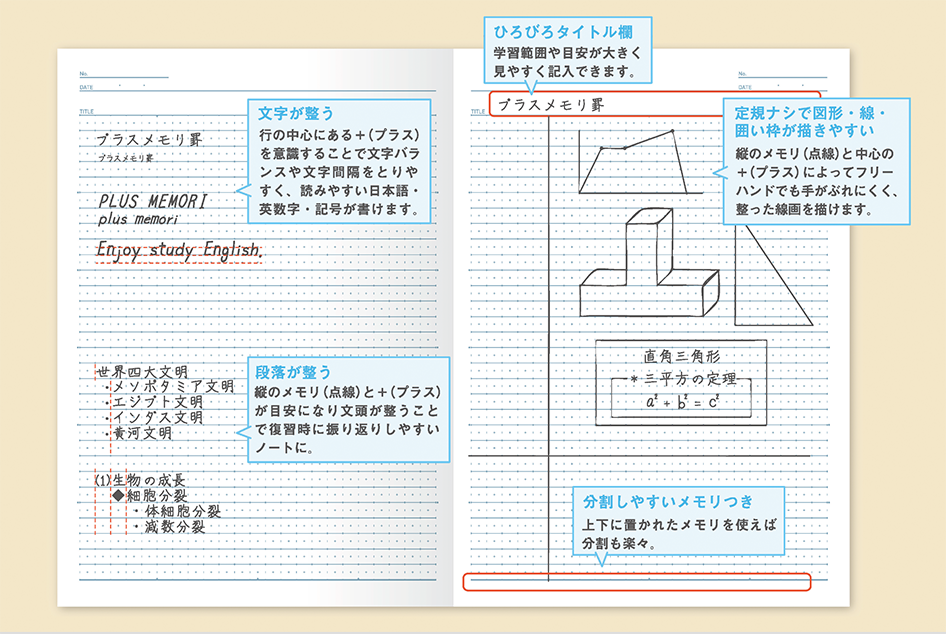 No.
DATE
TITLE
プラスメモリ罫
プラスメモリ罫
PLUS MEMORI
plus memori
Enjoy study English.
文字が整う
行の中心にある+(プラス)
を意識することで文字バラ
ンスや文字間隔をとりや
すく、読みやすい日本語・
英数字・記号が書けます。
世界四大文明
・メソポタミア文明
・エジプト文明
・インダス文明
・黄河文明
段落が整う
縦のメモリ(点線)と+(プラス)
が目安になり文頭が整うこと
で復習時に振り返りしやすい
ノートに。
(1)生物の成長
◆細胞分裂
・体細胞分裂
・減数分裂
ひろびろタイトル欄
学習範囲や目安が大きく
見やすく記入できます。
No.
DATE
TITLE
プラスメモリ罫
定規ナシで図形・線・
囲い枠が描きやすい
縦のメモリ(点線)と中心の
+(プラス)によってフリー
ハンドでも手がぶれにくく、
整った線画を描けます。
直角三角形
*三平方の定理
a² + b² = c²
分割しやすいメモリつき
上下に置かれたメモリを使えば
分割も楽々。